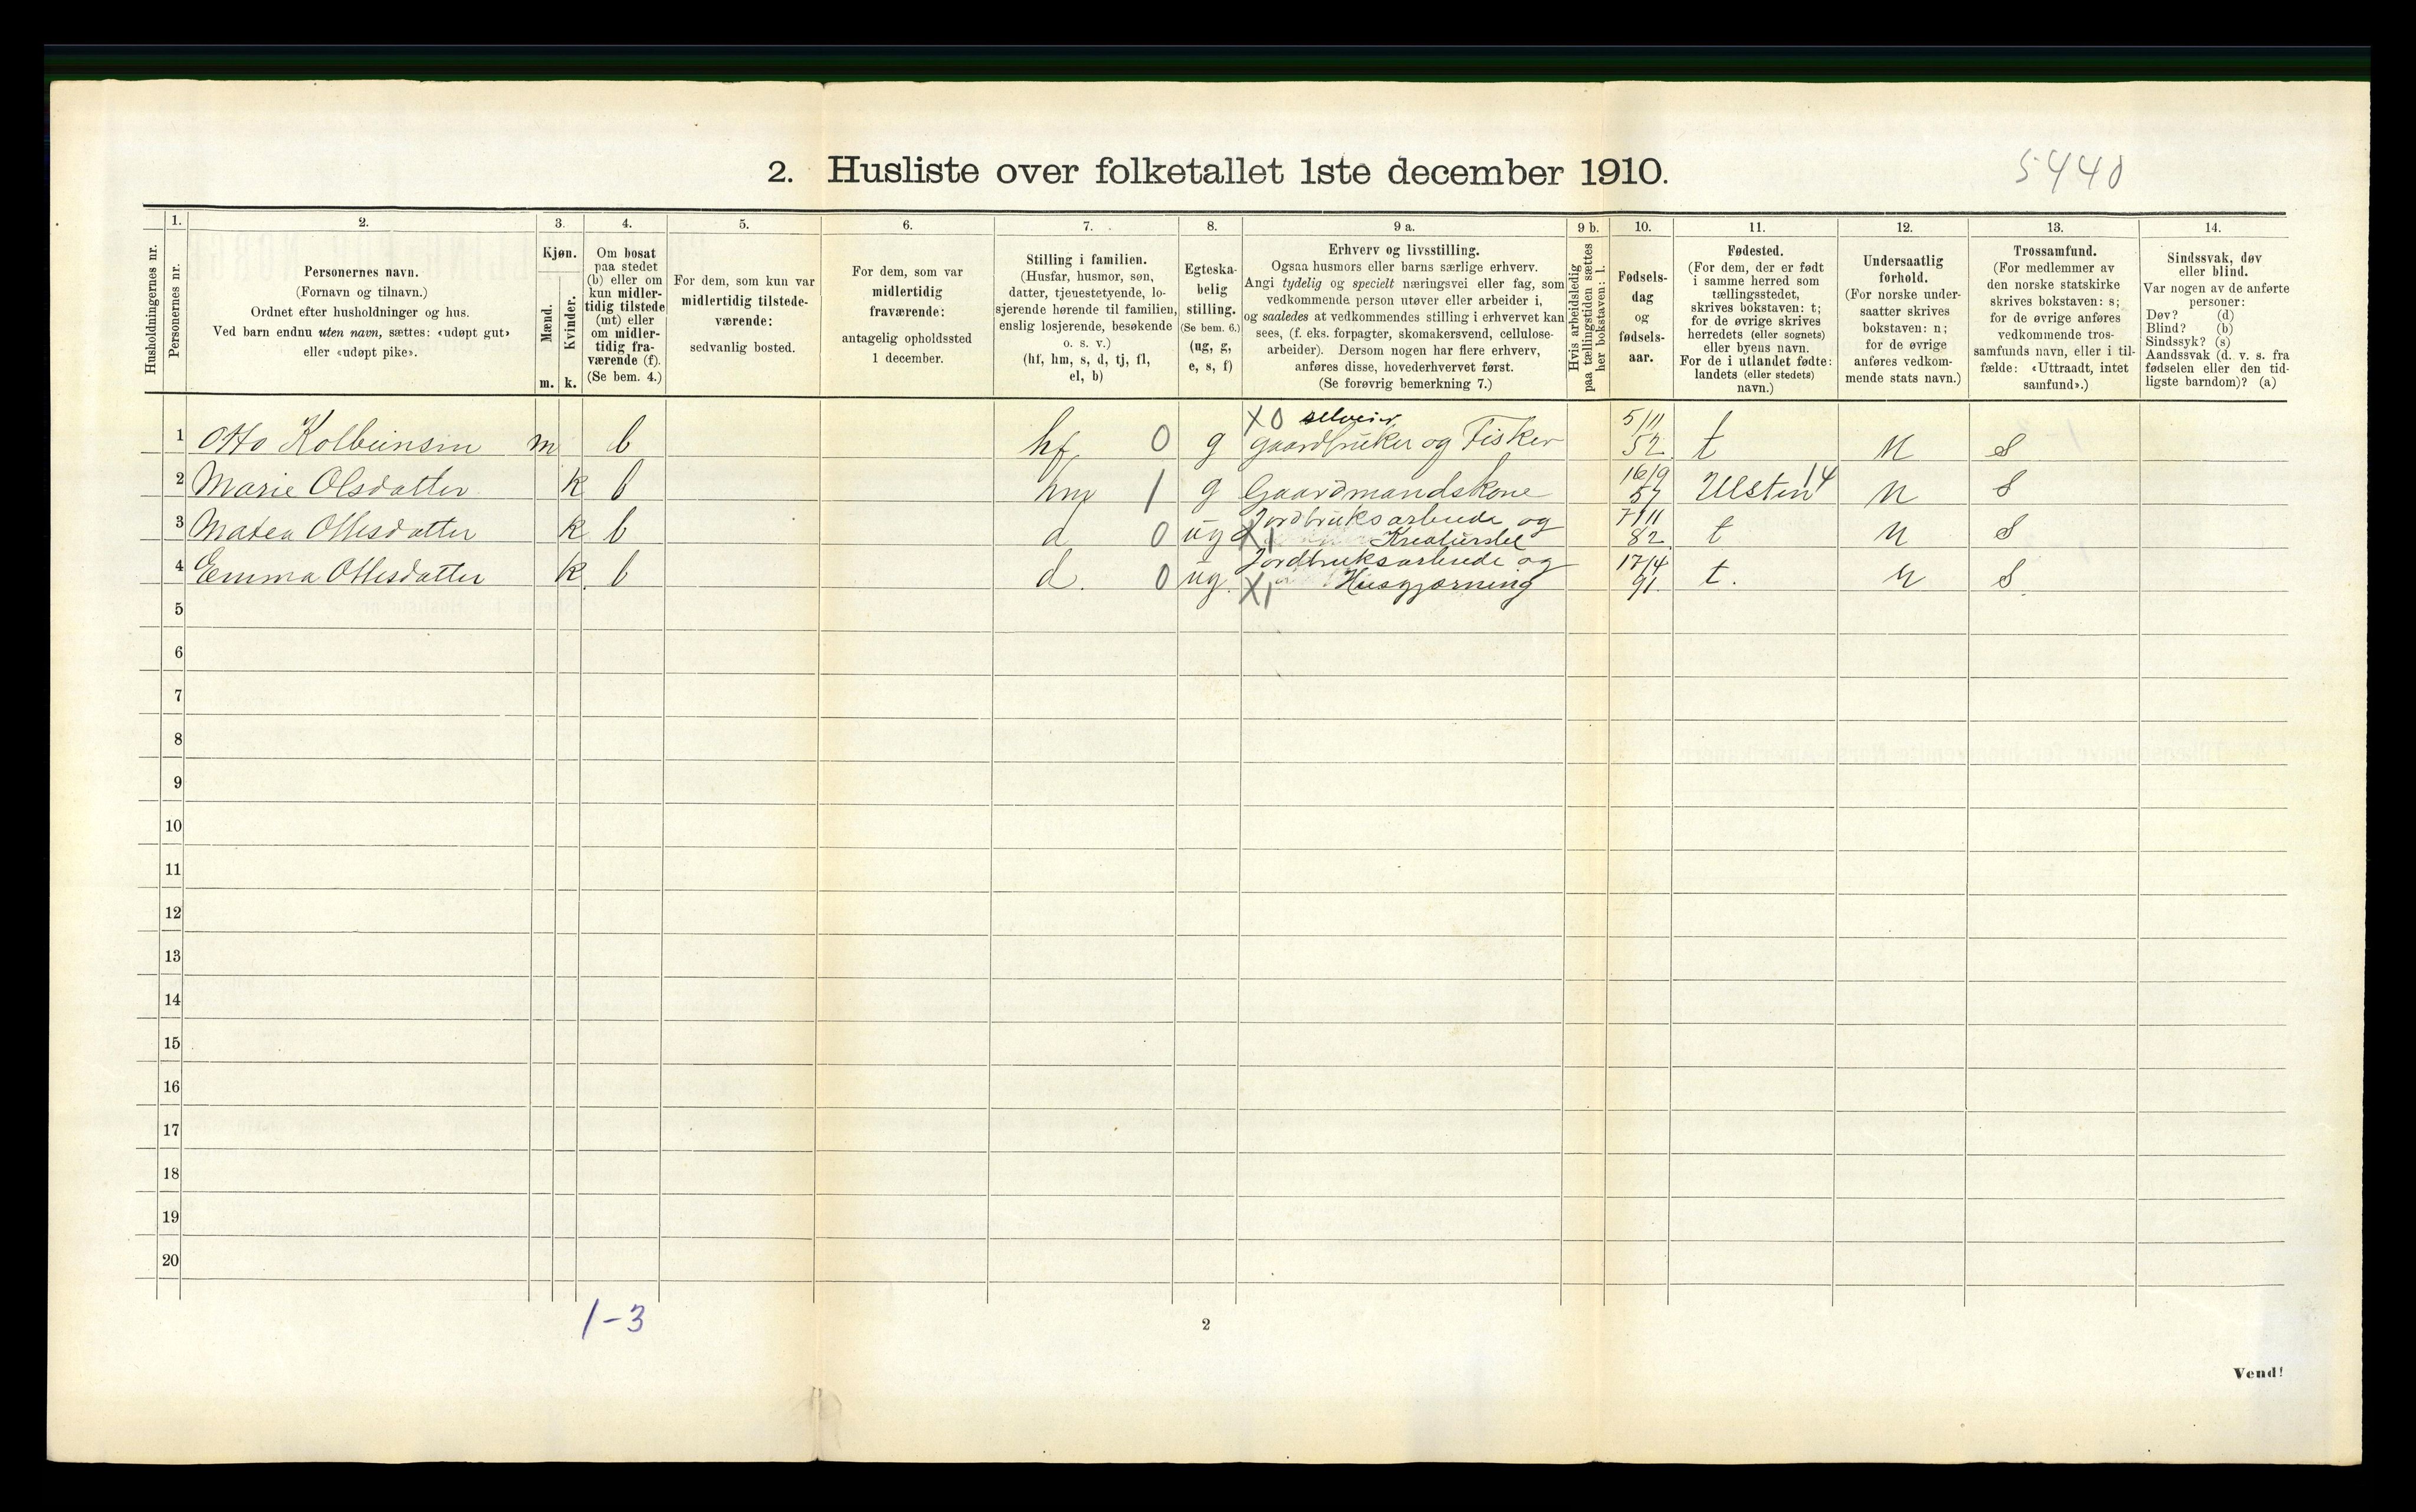 2. Husliste over folketallet 1ste december 1910.
5440
Husholdningernes nr.
1.
Personernes nr.
2.
Personernes navn.
(Fornavn og tilnavn.)
Ordnet efter husholdninger og hus.
Ved barn endnu uten navn, sættes: «udøpt gut»
eller «udøpt pike».
3.
Kjøn.
Mænd.
Kvinder.
m. k.
4.
Om bosat
paa stedet
(b) eller om
kun midler-
tidig tilstede
(mt) eller
om midler-
tidig fra-
værende (f).
(Se bem. 4.)
5.
For dem, som kun var
midlertidig tilstede-
værende:
sedvanlig bosted.
6.
For dem, som var
midlertidig
fraværende:
antagelig opholdssted
1 december.
7.
Stilling i familien.
(Husfar, husmor, søn,
datter, tjenestetyende, lo-
sjerende hørende til familien,
enslig losjerende, besøkende
o. s. v.)
(hf, hm, s, d, tj, fl,
el, b)
8.
Egteska-
belig
stilling.
(Se bem. 6.)
(ug, g,
e, s, f)
9 a.
Erhverv og livsstilling.
Ogsaa husmors eller barns særlige erhverv.
Angi tydelig og specielt næringsvei eller fag, som
vedkommende person utøver eller arbeider i,
og saaledes at vedkommendes stilling i erhvervet kan
sees, (f. eks. forpagter, skomakersvend, cellulose-
arbeider). Dersom nogen har flere erhverv,
anføres disse, hovederhvervet først.
(Se forøvrig bemerkning 7.)
9 b.
Hvis arbeidsledig
paa tællingstiden sættes
her bokstaven: l.
10.
Fødsels-
dag
og
fødsels-
aar.
11.
Fødested.
(For dem, der er født
i samme herred som
tællingsstedet,
skrives bokstaven: t;
for de øvrige skrives
herredets (eller sognets)
eller byens navn.
For de i utlandet fødte:
landets (eller stedets)
navn.)
12.
Undersaatlig
forhold.
(For norske under-
saatter skrives
bokstaven: n;
for de øvrige
anføres vedkom-
mende stats navn.)
13.
Trossamfund.
(For medlemmer av
den norske statskirke
skrives bokstaven: s;
for de øvrige anføres
vedkommende tros-
samfunds navn, eller i til-
fælde: «Uttraadt, intet
samfund».)
14.
Sindssvak, døv
eller blind.
Var nogen av de anførte
personer:
Døv? (d)
Blind? (b)
Sindssyk? (s)
Aandssvak (d. v. s. fra
fødselen eller den tid-
ligste barndom)? (a)
X0 selveier 5/11
1 Otto Kolbeinsen m b hf 0 g Gaardbruker og Fisker 52 t n s
16/9 14
2 Marie Olsdatter k b hm 1 g Gaardmandskone 57 Ulsten n s
Jordbruksarbeide og 7/11
3 Matea Ottesdatter k b d 0 ug X1 Kreaturstel 82 t n s
Jordbruksarbeide og 17/4
4 Emma Ottesdatter k b d. 0 ug. X1 Husgjærning 91. t. n s.
5
6
7
8
9
10
11
12
13
14
15
16
17
18
19
20
1-3
2
Vend!